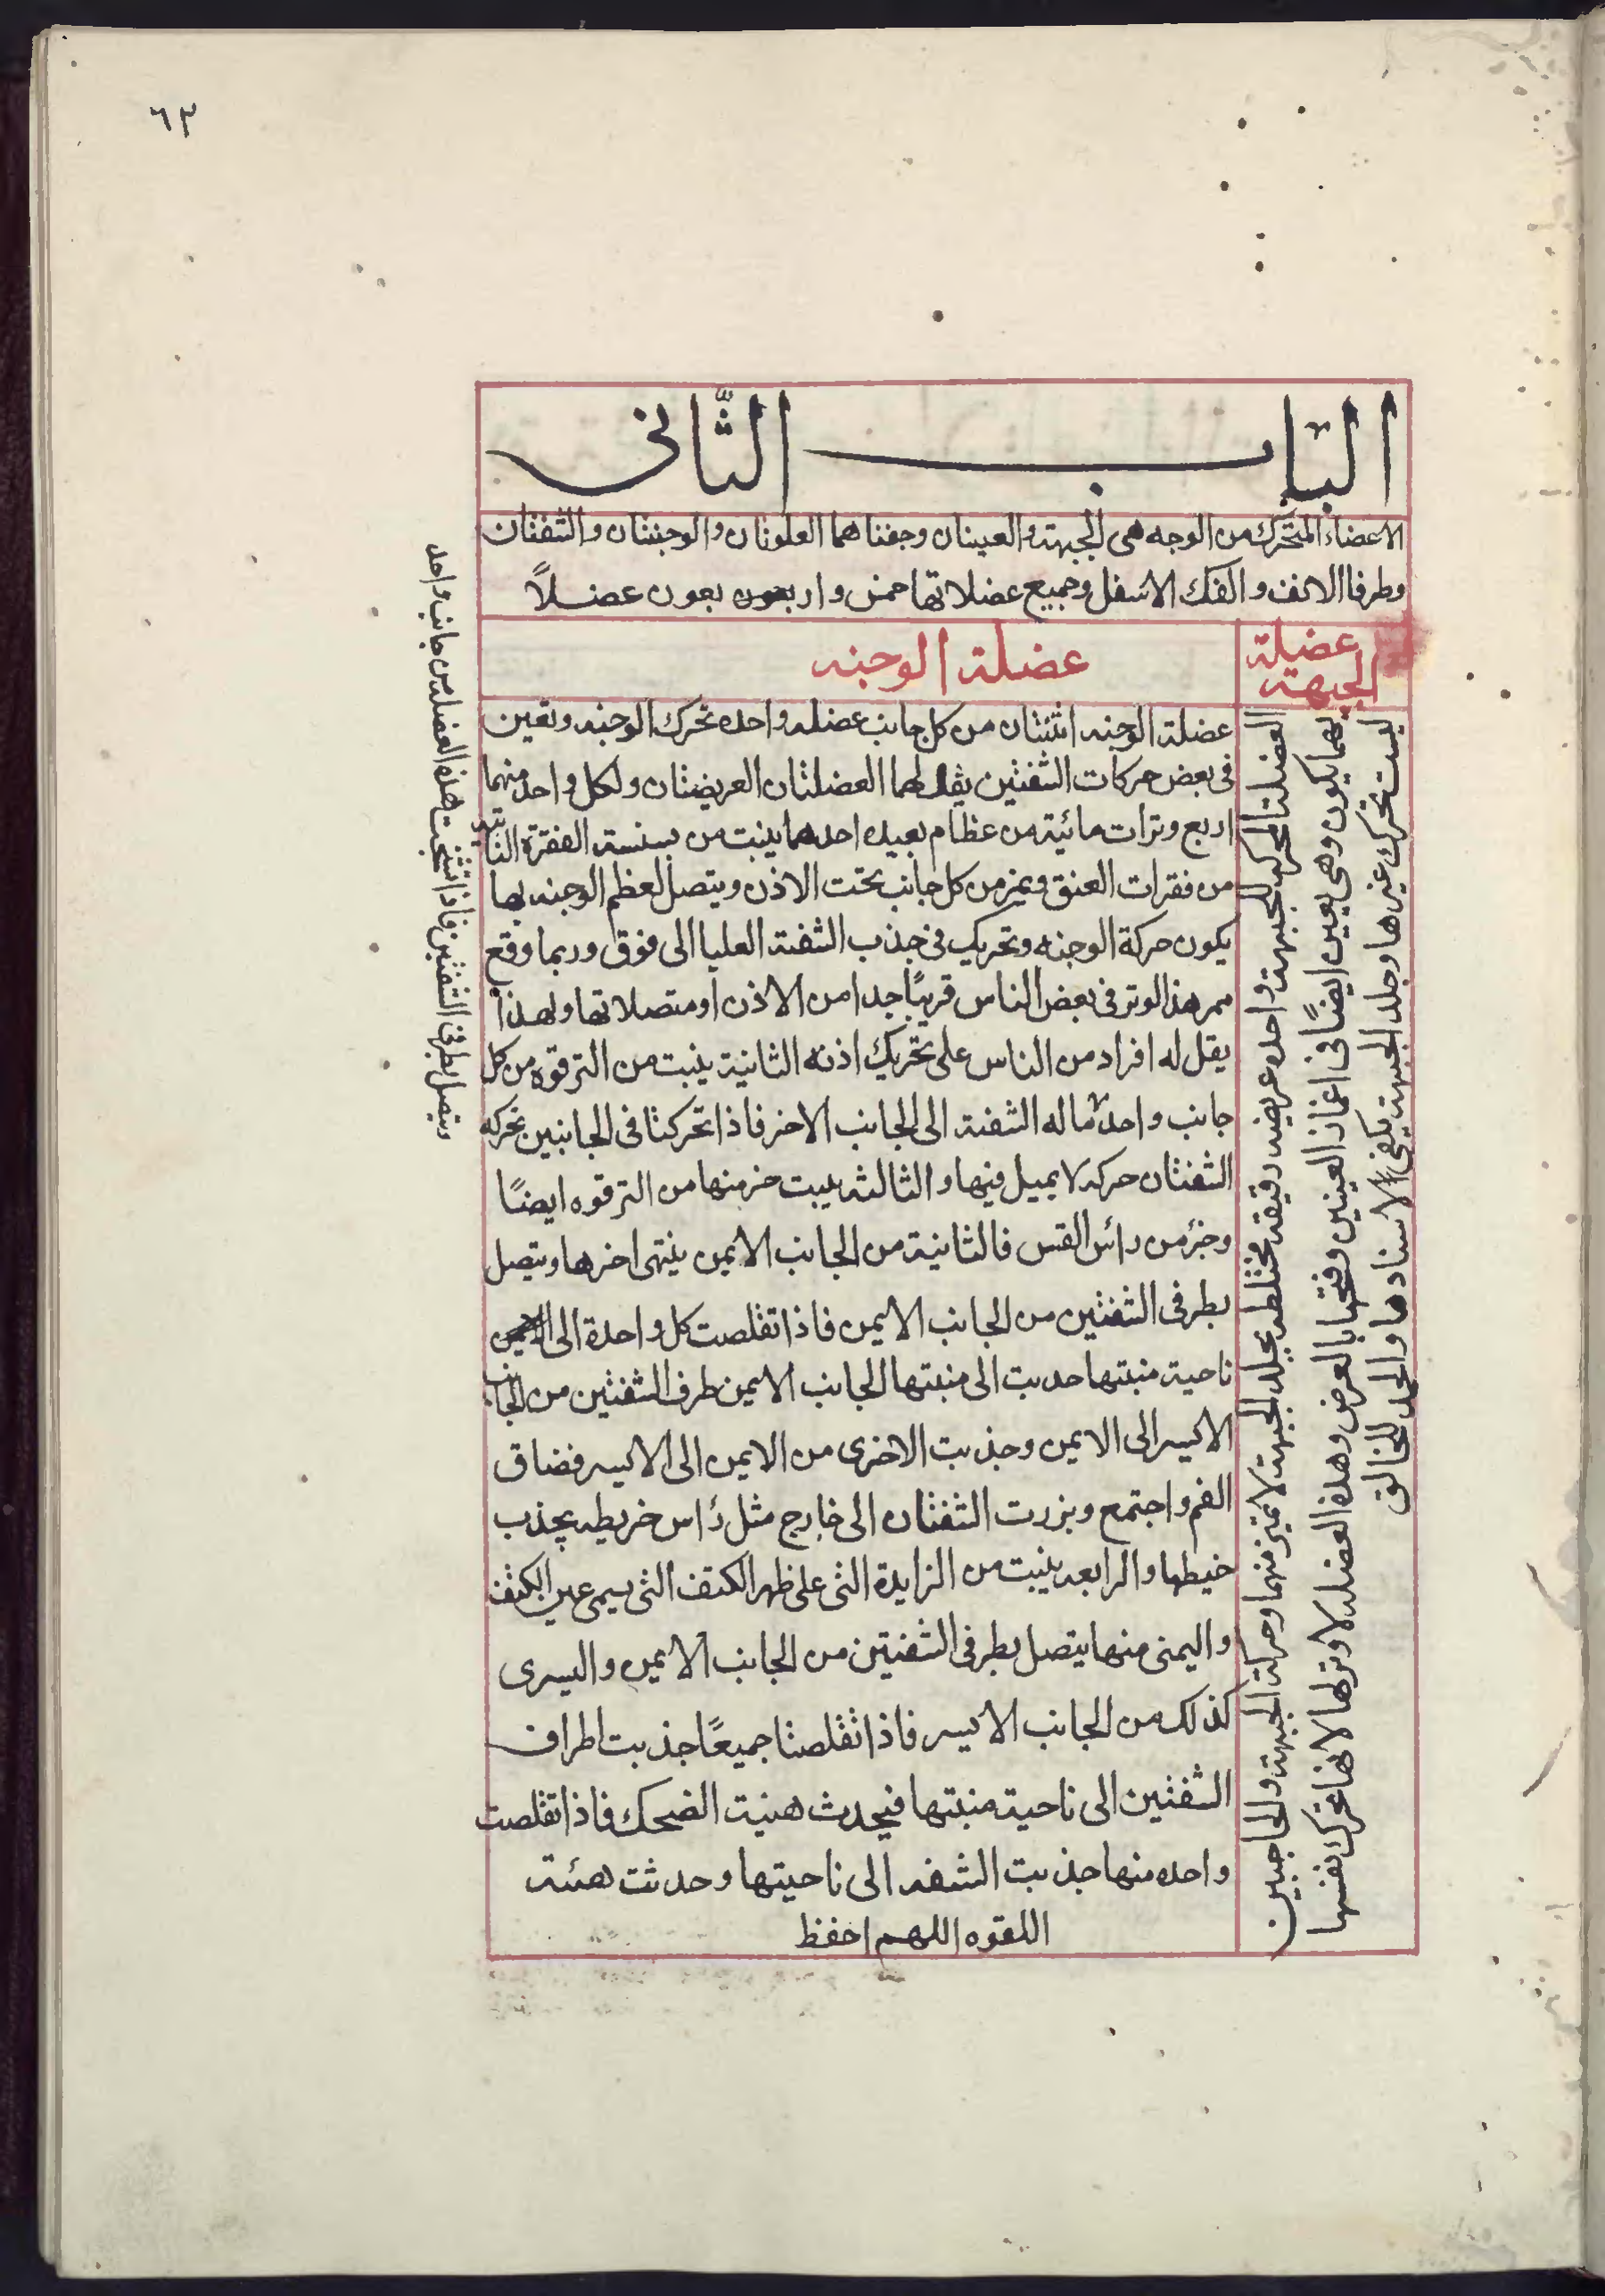 ٦٣
الباب الثانى
الاعضاء المتحرك من الوجه هى الجبهة والعينان وجفناهما العلونان والوجنتان والشفتان
وطرفا الانف والفك الاسفل وجميع عضلاتها خمس واربعون عضلاً
عضيلة
الجبهة
عضلة الوجنه
العضلتا المحركه للجبهة واحده عريضه دقيقه مختلطه بجلد الجبهة لا تميز منهما وحركة الجبهة والحاجبين
بهما يكون وهى يعين ايضًا فى اغماز العينين وفتحها بالعرض وهذه العضله لا وتر لها لانها تحرك نفسها
ليست تحرك غيرها وجلد الجبهة يكفى الاسنادها والحمد للخالق
عضلة الوجنه اثنتان من كل جانب عضله واحده تحرك الوجنه وتعين
فى بعض حركات الشفتين يقال لهما العضلتان العريضتان ولكل واحد منهما
اربع وترات مائية من عظام بعيده احدهما ينبت من سنسنة الفقرة الثانيه
من فقرات العنق ويمر من كل جانب تحت الاذن ويتصل لعظم الوجنه بها
يكون حركة الوجنه وتحريك فى جذب الشفة العليا الى فوق وربما وقع
ممر هذ الوتر فى بعض الناس قريبًا جدا من الاذن او متصلا تها ولهذا
يقل له افراد من الناس على تحريك اذنه الثانية ينبت من الترقوه من كل
جانب واحد ماله الشفة الى الجانب الاخر فاذا تحركتا فى الجانبين تحركه
الشفتان حركه لا يميل فيها والثالثه ينبت جز منها من الترقوه ايضًا
وجزؤ من رائس القس فالثانية من الجانب الايمن ينتهى اخرها ويتصل
بطرفى الشفتين من الجانب الايمن فاذا تقلصت كل واحدة الى
ناحية منبتها حدبت الى منبتها الجانب الايمن طرف الشفتين من الجانب
الايسر الى الايمن وجذبت الاخرى من الايمن الى الايسر فضاق
الفم واجتمع وبزرت الشفتان الى خارج مثل رأس خريطه يجذب
خيطها والرابعه ينبت من الزايدة التى على ظهر الكتف التى يسمى عين الكتف
واليمنى منها يتصل بطرفى الشفتين من الجانب الايمن واليسرى
كذلك من الجانب الايسر فاذا تقلصتا جميعًا جذبت اطراف
الشفتين الى ناحية منبتها فيحدث هئية الضحك فاذا تقلصت
واحده منها جذبت الشفه الى ناحيتها وحدثت هئية
اللقوه اللهم احفظ
ويتصل بطرفى الشفتين فاذا تشنجت هذه العضله من جانب واحد